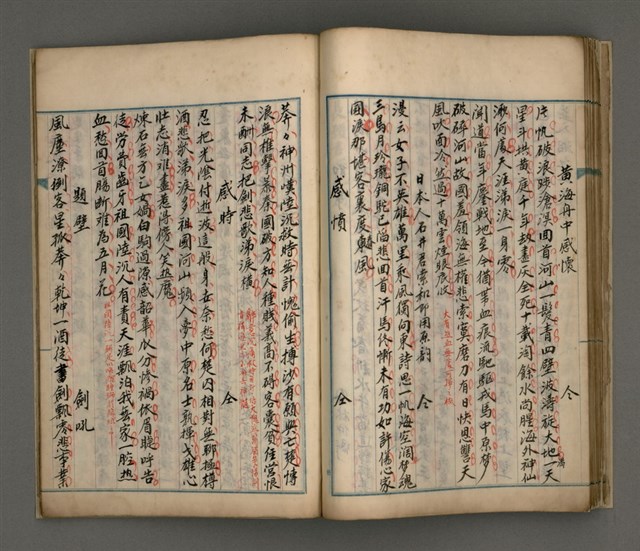 黃海舟中感懷 仝
片帆破浪踄滄溟回首河山一髮青四壁波濤旋大地一天
星斗拱黃庭千年劫盡灰全死十載淘餘水尚腥海外神仙
渺何處天涯涕淚一身零
聞道當年鏖戰地至今猶帶血痕流馳驅戎馬中原夢
破碎河山故國羞領海無權悲索寞磨刀有日快恩讐天
風吹面泠然過十萬雲煙眼底收
日本人石井君索和即用原韻 仝
漫云女子不英雄萬里乘風獨向東詩思一帆海空濶夢魂
三島月玲瓏銅駝已陷悲回首汗馬終慚未有功如許傷心家
國淚那堪客裏東風
感憤 仝
莽々神州嘆陸沉救時無計愧偷生摶沙有願興亡楚博
浪無椎擊暴秦國破方知人種賤義高不碍客囊貧經營恨
未酬同志把劍悲歌涕淚橫
感時 仝
忍把光陰付逝波這般身世奈愁何楚囚相對無聊極樽
酒悲歌涕淚多祖國河山頻入夢中原名士孰揮戈雄心
壯志消難盡惹得傍人笑熱魔
煉石無方乞女媧白駒過隙感韶華瓜分慘禍依眉睫呼告
徒勞費齒牙祖國陸沉人有責天涯飄泊我無家腔熱
血愁回首腸斷難為五月花
題壁 劍吼
風塵潦倒客星孤莽々乾坤一酒徒書劍飄零悲事業